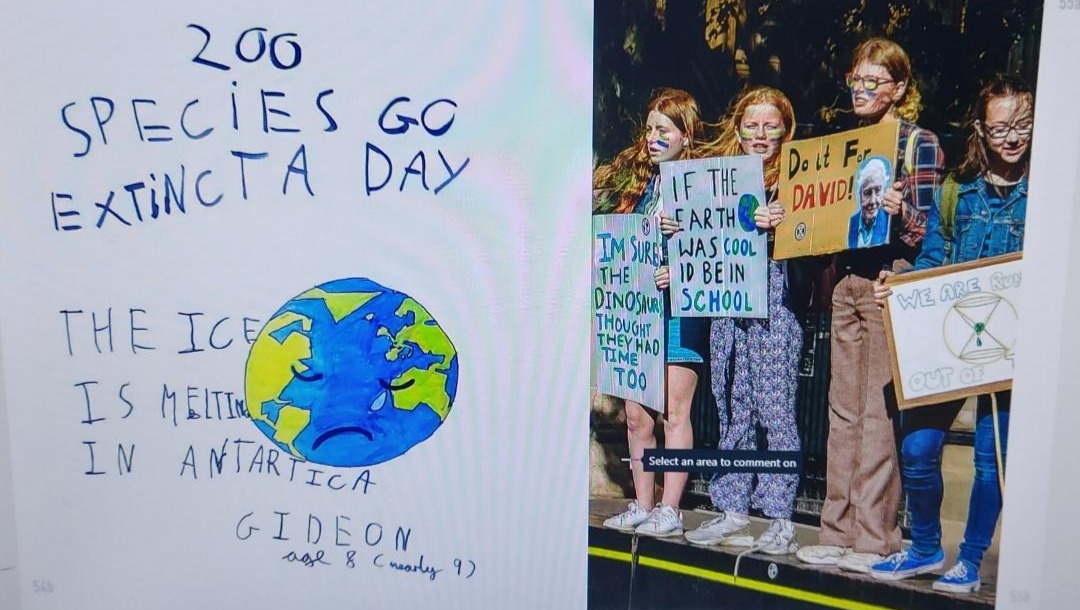 200
SPECIES GO
EXTINCT A DAY
THE ICE
IS MELTING
IN ANTARTICA
GIDEON
age 8 (nearly 9)
54b
IM SURE
THE
DINOSAURS
THOUGHT
THEY HAD
TIME
TOO
IF THE
EARTH
WAS COOL
ID BE IN
SCHOOL
Do it For
DAVID!
WE ARE RUN
OUT OF
Select an area to comment on
55a
55b